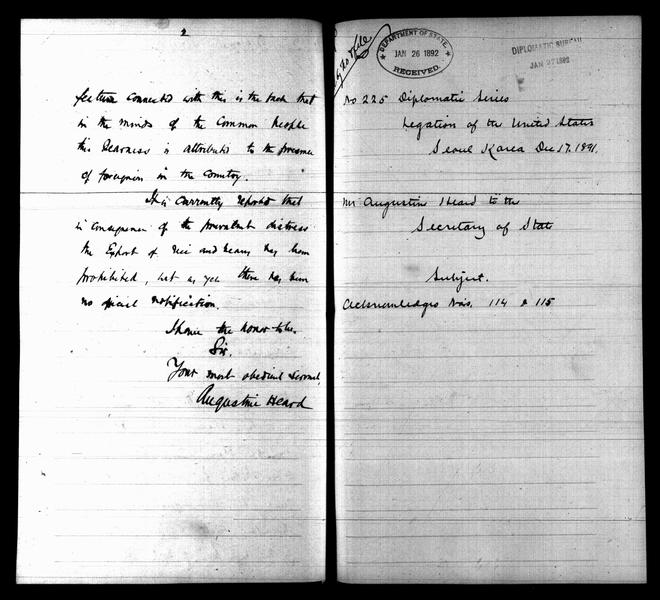 2
feature connected with this is the fact that
in the minds of the Common People
this dearness is attributed to the presence
of foreigners in the Country.
It is currently reported that
in consequence of the prevalent distress
the Export of rice and beans has been
prohibited, but as yet there has been
no official notification.
I have the honor to be,
Sir,
Your most obedient servant,
Augustine Heard
DEPARTMENT OF STATE,
JAN 26 1892
RECEIVED.
DIPLOMATIC BUREAU
JAN 27 1892
No 225 Diplomatic Series
Legation of the United States
Seoul Korea Dec 17. 1891.
Mr Augustine Heard to the
Secretary of State
Subject.
Acknowledges Nos. 114 & 115